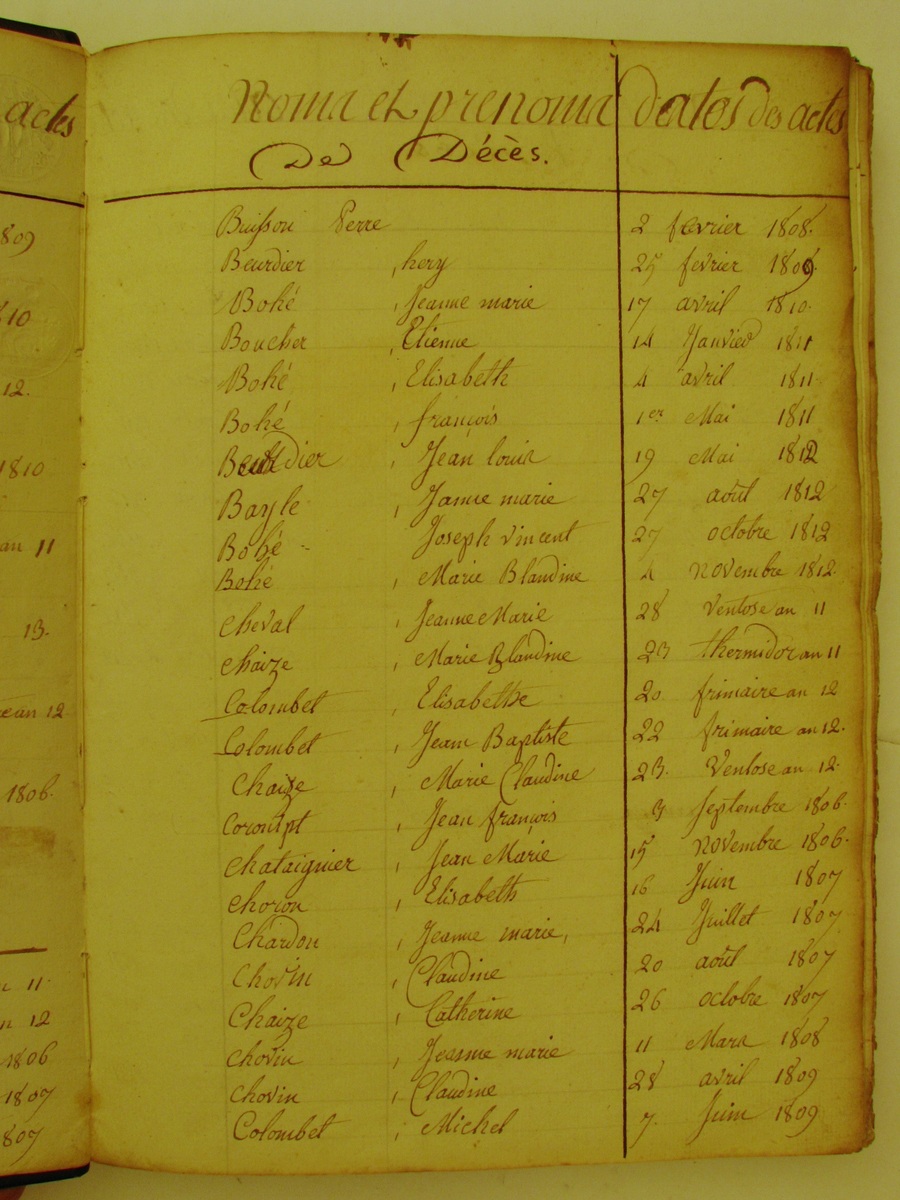 actes
1809
1810
12.
1810
an 11
13.
an 12
1806.
11.
12
1806
1807
1807
Noms et prenoms dates des actes
De Décès.
Buisson Pierre 2 fevrier 1808.
Beurdier , hery 25 fevrier 1809.
Bohé , Jeanne marie 17 avril 1810.
Boucher , Etienne 14 Janvier 1811
Bohé , Elisabeth 4 avril 1811.
Bohé , françois 1er Mai 1811
Beurdier , Jean louis 19 Mai 1812
Bayle , Jeanne marie 27 août 1812
Bohé Joseph vincent 27 octobre 1812
Bohé , Marie Blandine 4 novembre 1812.
Cheval , Jeanne Marie 28 Ventose an 11
Chaize , Marie Blandine 23 thermidor an 11
Colombet , Elisabethe 20 frimaire an 12
Colombet , Jean Baptiste 22 frimaire an 12.
Chaize , Marie Claudine 23. Ventose an 12.
, Jean françois 3 Septembre 1806.
Chataignier , Jean Marie 15 novembre 1806.
Choron , Elisabeth 16 Juin 1807
Chardon , Jeanne marie, 24 Juillet 1807
Chovin , Claudine 20 août 1807
Chaize , Catherine 26 octobre 1807
Chovin , Jeanne marie 11 Mars 1808
Chovin , Claudine 28 avril 1809
Colombet , Michel 7. Juin 1809